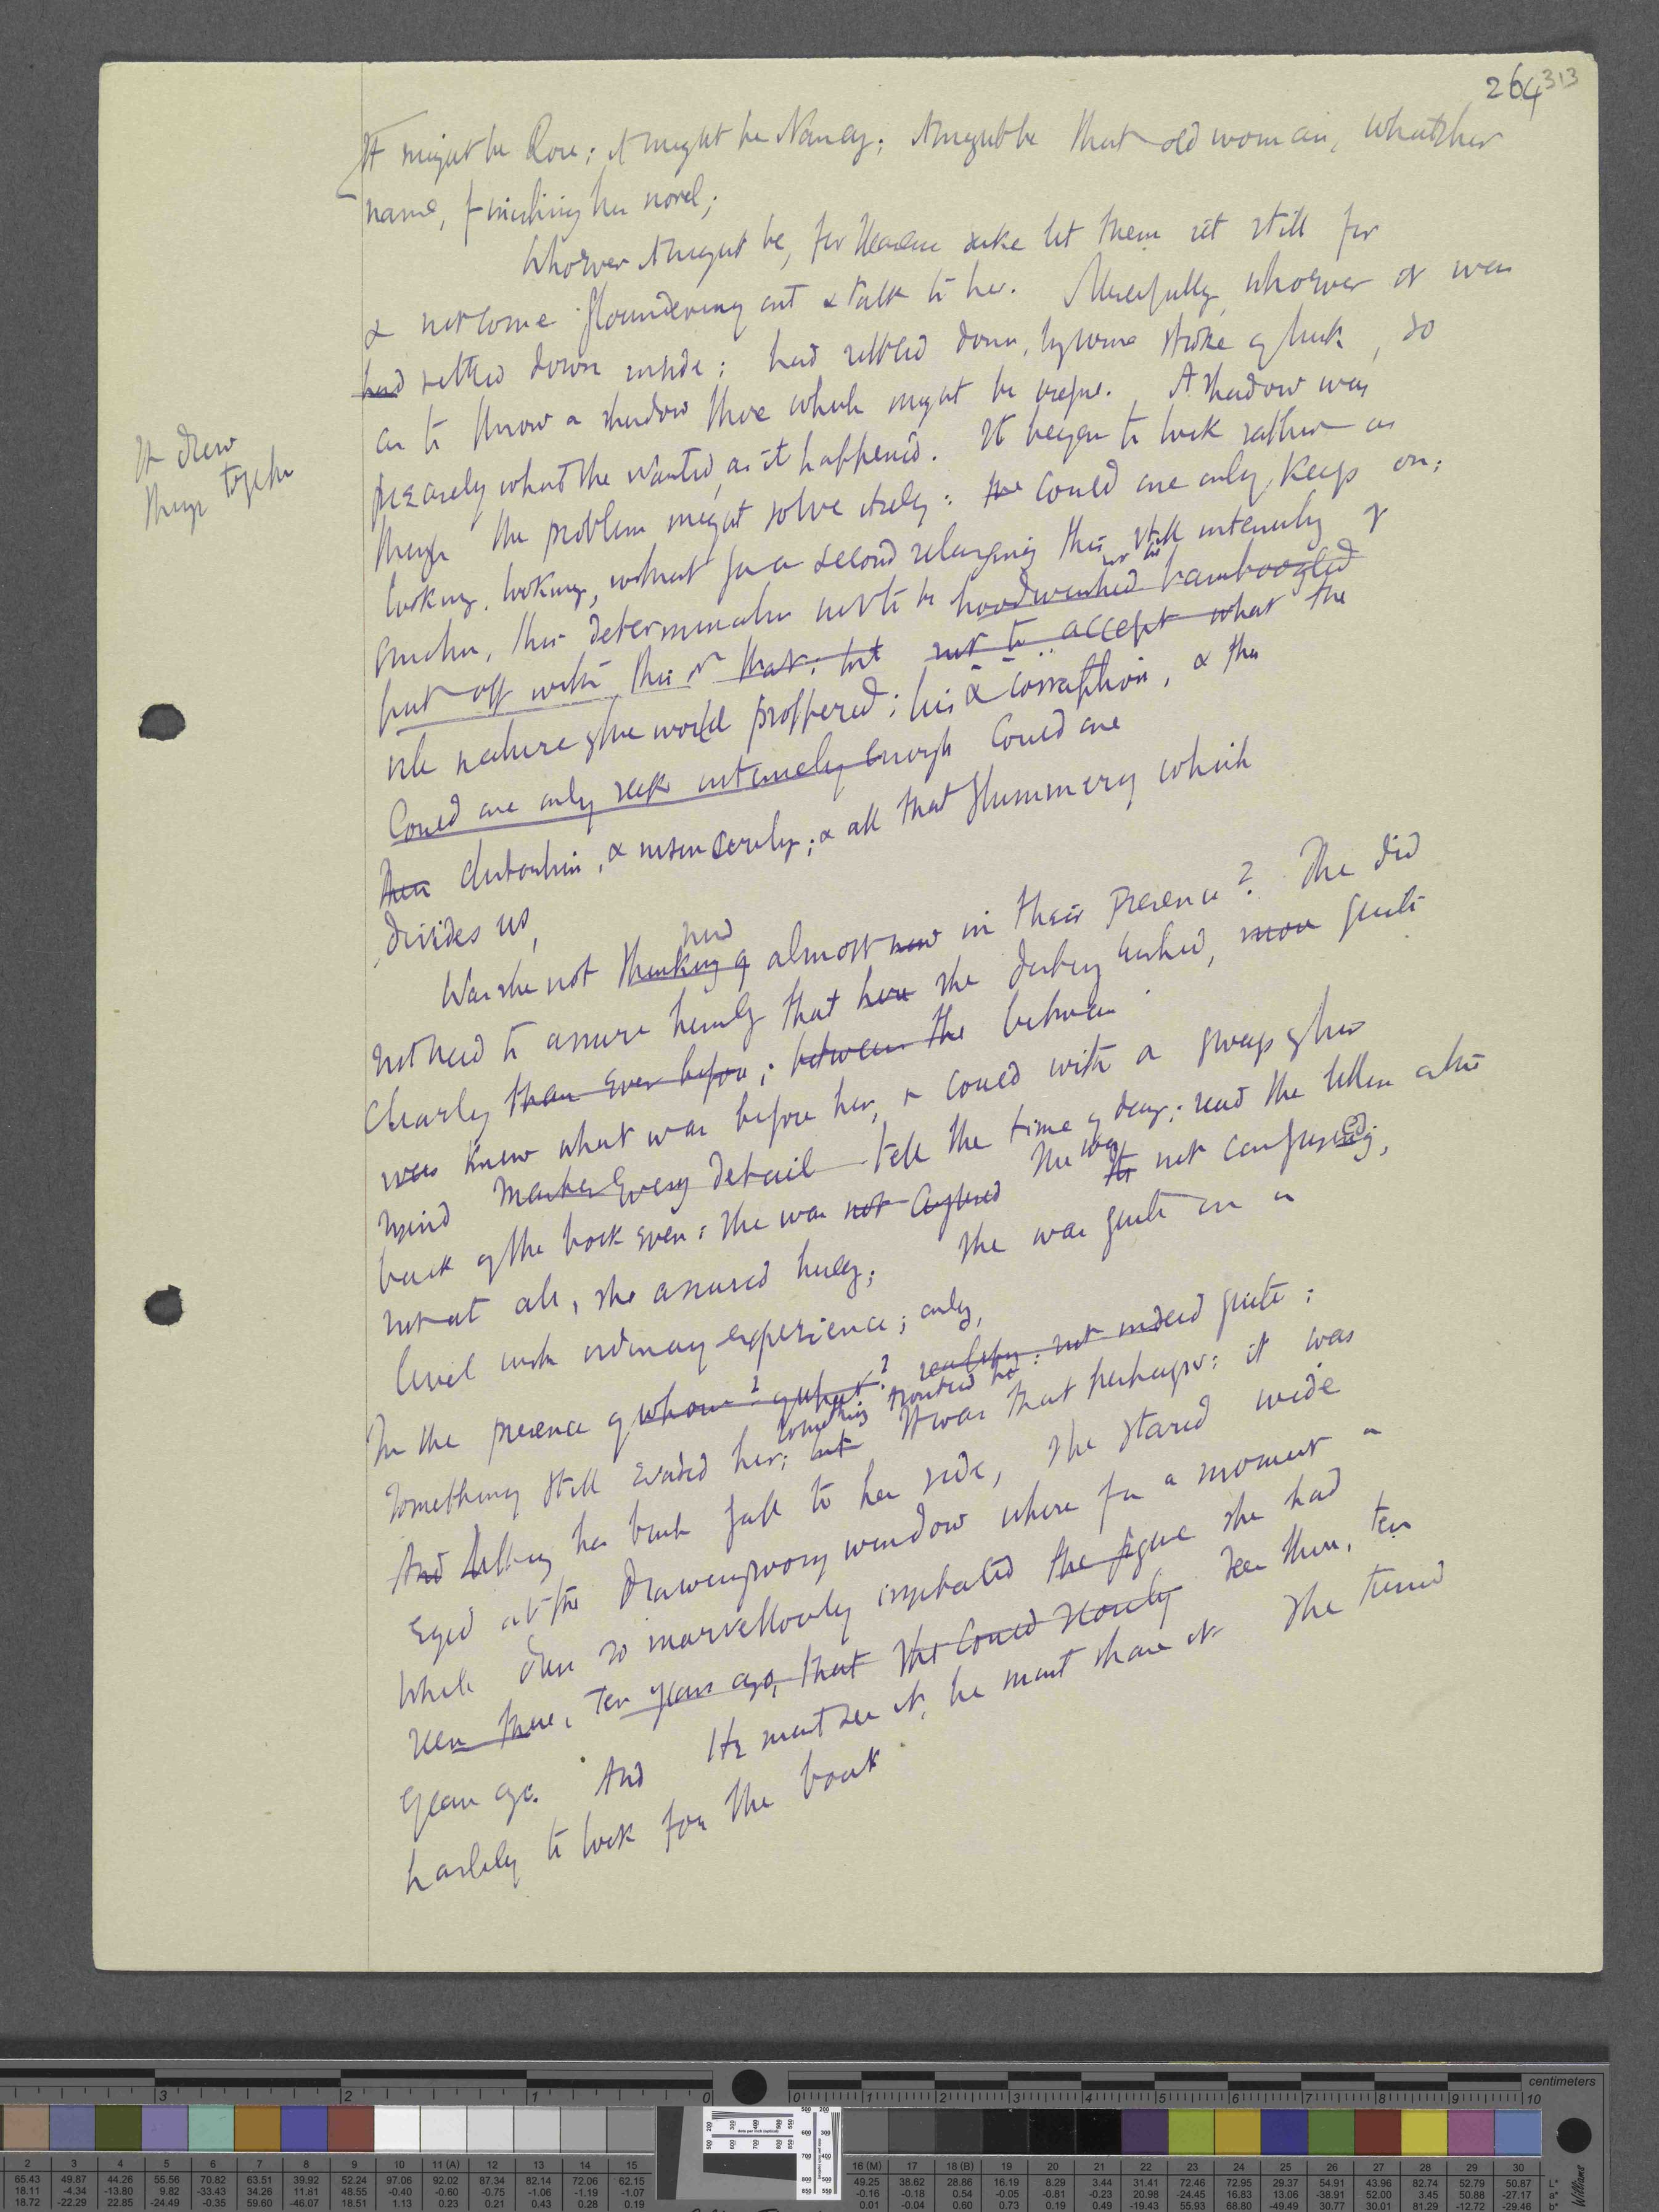 264 313
It might be Rose; it might be Nancy; it might be that old woman, whatsher
name, finishing her novel;
Whoever it might be, for Heavens sake let them sit still for
& not come floundering out & talk to her. Mercifully, whoever it was
had settled down inside; had settled down, by some stroke of luck, so
as to throw a shadow there which might be vague. A shadow was
precisely what she wanted, as it happened. It began to look rather as
though the problem might solve itself: she could one only keep on;
It drew
things together
looking, looking, without for a second relaxing this still intensity of
this determination not to be hoodwinked bamboozled
not to be
put off with this or that; but not to accept what the
nature of the world proffered; his & corruption, & the
Could one only seek intensely enough Could one
then & insincerity; & all that flummery which
divides us,
Was she not thinking of almost now in their presence? She did
now
not need to assure herself that here she looked, more quite
clearly than ever before; between the between
was knew what was before her, & could with a sweep of her
mind marked every detail tell the time of day; read the letters on the
back of the book even: she was not confused She was It not confusing,
ed;
not at all, she assured herself; She was quite on a
level with ordinary experience; only,
In the presence of whom? of what? reality: not indeed quite;
Something still evaded her; but It was that perhaps: it was
something
And letting her brush fall to her side, she stared wide
eyed at the drawingroom window where for a moment a
so marvellously imitated the figure she had
seen there, ten years ago, that she could scarcely seen there, ten
years ago. And He must see it, he must share it She turned
hastily to look for the boat
2 3 4 5 6 7 8 9 10 11 (A) 12 13 14 15 16 (M) 17 18 (B) 19 20 21 22 23 24 25 26 27 28 29 30
centimeters